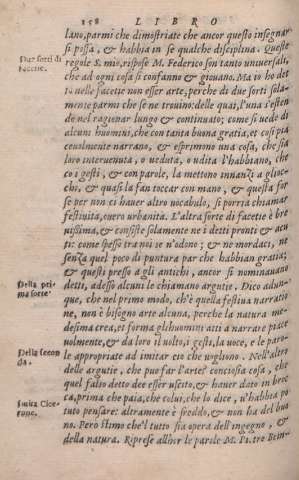 158 LIBRO
lano, parmi che dimostriate che ancor questo insegnar
si possa, & habbia in se qualche disciplina. Queste
Due sorti di
facetie.
regole S. mio, rispose M. Federico son tanto universali,
che ad ogni cosa si confanno & giovano. Ma io ho det
to nelle facetie non esser arte, perche di due sorti sola-
mente parmi che se ne trovino: delle quai, l'una s'esten
de nel ragionar lungo & continuato; come si vede di
alcuni huomini, che con tanta buona gratia, et cosi pia
cevolmente narrano, & esprimono una cosa, che sia
loro intervenuta, o veduta, o udita l'habbiano, che
co i gesti, & con parole, la mettono innanzi a gl'ioc-
chi, & quasi la fan toccar con mano, & questa for
se per non ci haver altro vocabulo, si porria chiamar
festività, overo urbanita. L'altra sorte di facetie è bre
vissima, & consiste solamente ne i detti pronti & acu
ti: come spesso tra noi se n'odono; & ne mordaci, ne
senza quel poco di puntura par che habbian gratia;
& questi presso a gli antichi, ancor si nominavano
Della pri
ma sorte
detti, adesso alcuni le chiamano argutie. Dico adun-
que, che nel primo modo, ch'è quella festiva narratio
ne, non è bisogno arte alcuna, perche la natura me-
desima crea, et forma gli huomini atti a narrare piace
volmente, & da loro il volto, i gesti, la voce, e le paro-
Della secon
da.
le appropriate ad imitar ciò che vogliono. Nell'altro
delle argutie, che può far l'arte? conciosia cosa, che
quel salso detto dee esser uscito, & haver dato in broc
ca, prima che paia, che colui, che lo dice, v'habbia po
Imita Cice-
rone.
tuto pensare: altramente è freddo, & non ha del buo
no. Però stimo che'l tutto sia opera dell'ingegno, &
della natura. Riprese allhor le parole M. Pietro Bem-